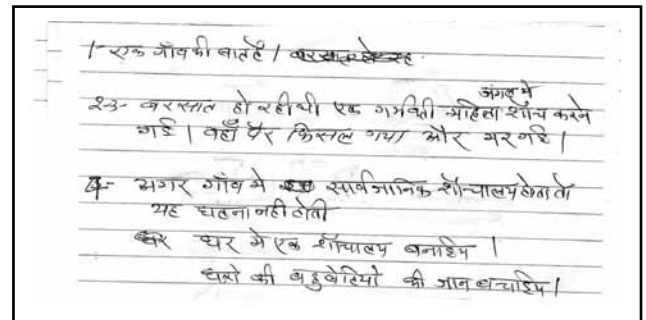 1- एक गाँव की बात है।
जंगल मे
2-3- बरसात हो रही थी एक गर्भवती महिला शौच करने
गई। वहाँ पैर फिसल गया और मर गई।
4- अगर गाँव मे सार्वजानिक शौचालय होता तो
यह घटना नही होती
घर मे एक शौचालय बनाइए।
घरो की बहुबेटियो की जान बचाइए।